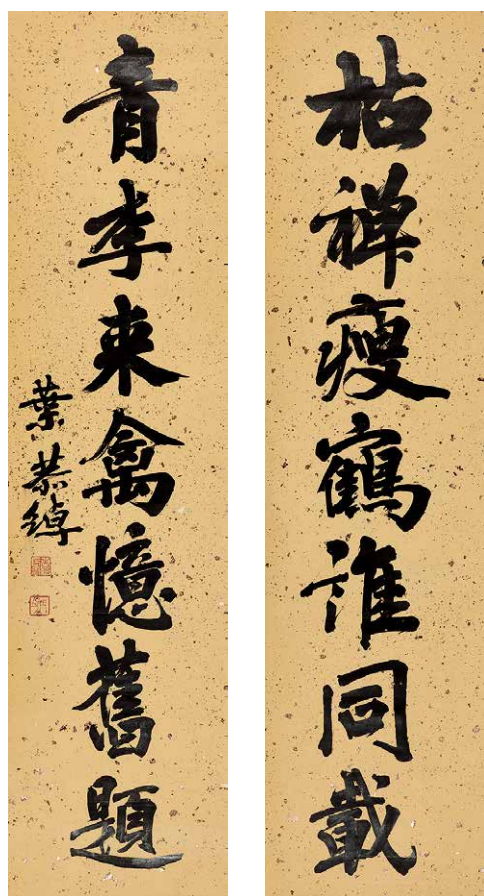 枯禅瘦鶴誰同載
青李来禽憶舊題
葉恭綽